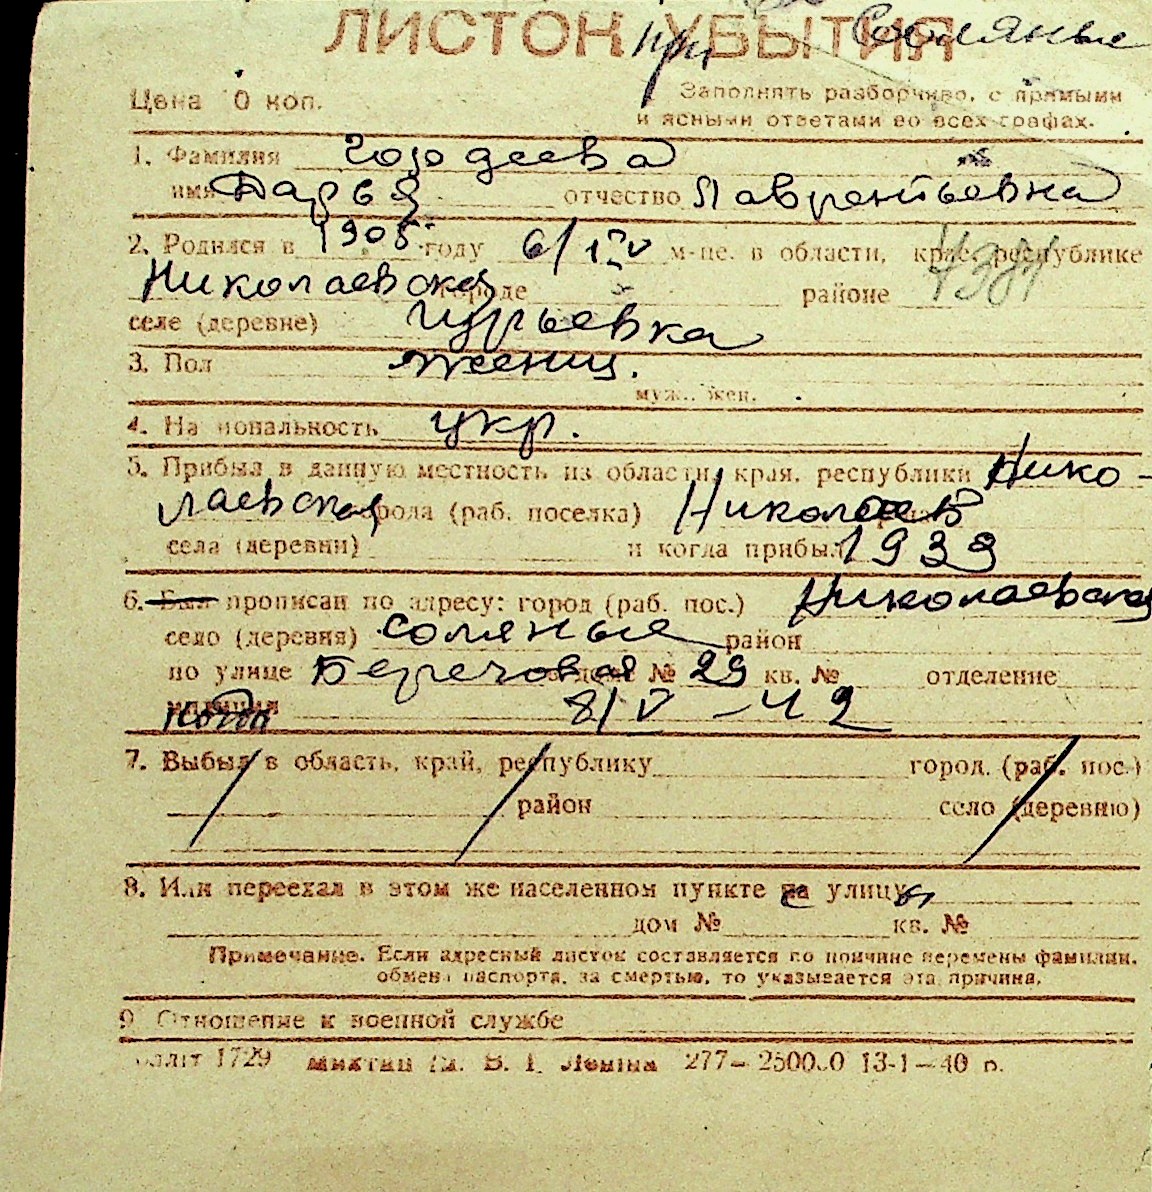 ЛИСТОК УБЫТИЯ
при Соляные
Цена 10 коп.
Заполнять разборчиво, с прямыми
и ясными ответами во всех графах.
1. Фамилия Гордеева
имя Дарья отчество Лаврентьевна
2. Родился в 1905 году 6/IV м-це. в области, крае, республике
Николаевская городе районе
селе (деревне) Гурьевка
3. Пол женщ.
муж., жен.
4. Национальность укр.
5. Прибыл в данную местность из области, края, республики Нико-
лаевская города (раб. поселка) Николаев
села (деревни) и когда прибыл 1933
6. Был прописан по адресу: город (раб. пос.) Николаевская
село (деревня) Соляные район
по улице дом № 29 кв. № отделение
8/V-42
7. Выбыл в область, край, республику город. (раб. пос.)
район село (деревню)
8. Или переехал в этом же населенном пункте на улицу
дом № кв. №
Примечание. Если адресный листок составляется по причине перемены фамилии,
обмена паспорта, за смертью, то указывается эта причина.
9. Отношение к военной службе
1729 В. І. Леніна 277—250000 13-1—40 р.